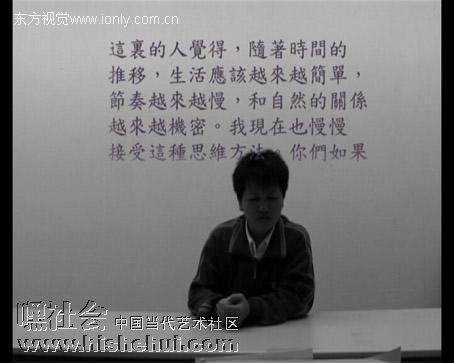 东方视觉 www.ionly.com.cn
這裏的人覺得，隨著時間的
推移，生活應該越來越簡單，
節奏越來越慢，和自然的關係
越來越機密。我現在也慢慢
接受這種思維方法。你們如果
嘿社会 中国当代艺术社区
www.hisheihui.com